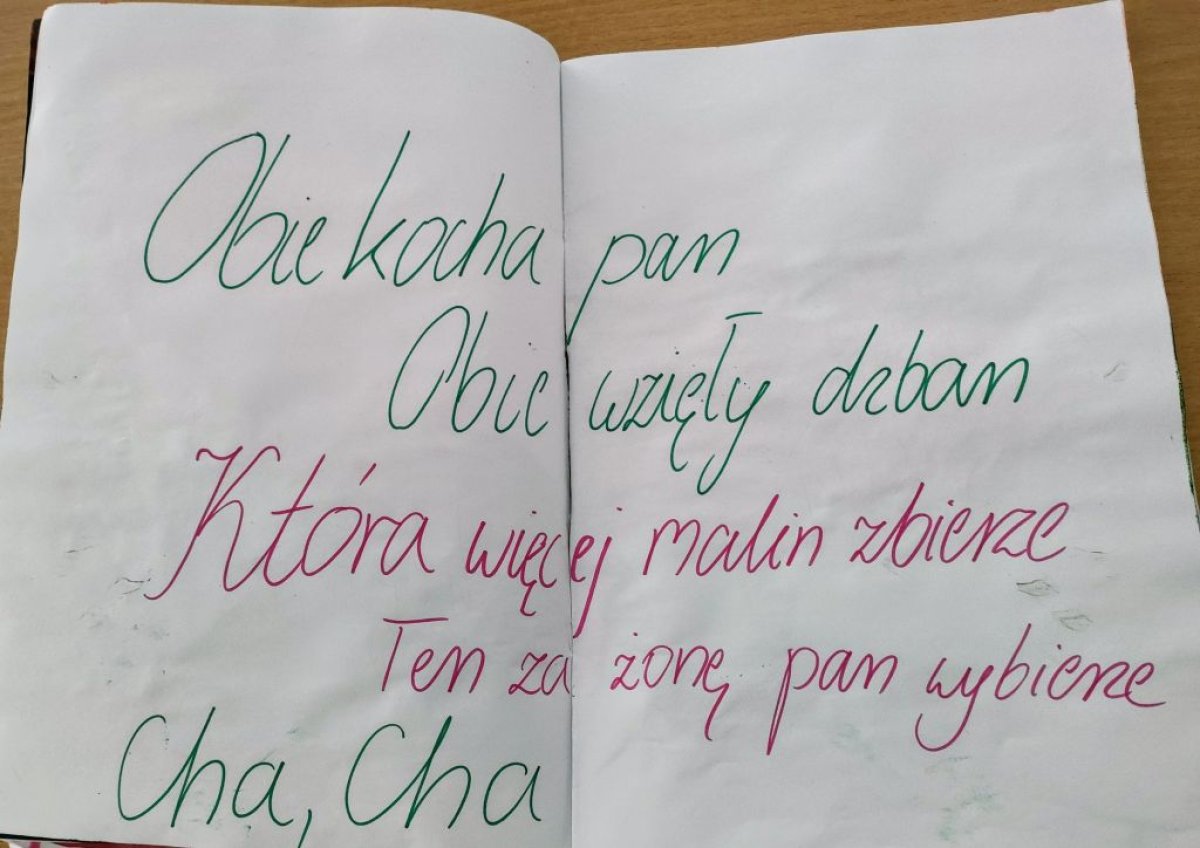 Obie kocha pan
Obie wzięły dzban
Która więcej malin zbierze
Ten za żonę pan wybierze
Cha, Cha